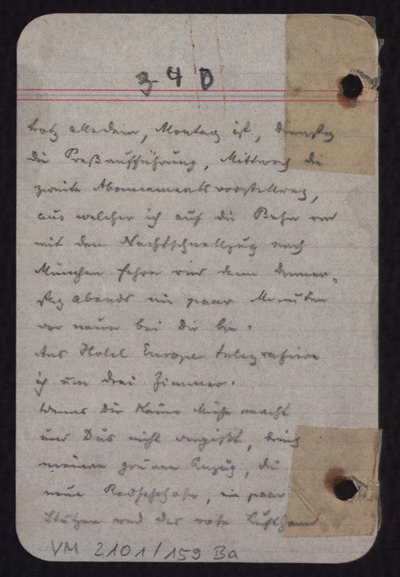 340
trotz alledem, Montag ist, Dienstag
die Preßaufführung, Mittwoch die
zweite Abonnementsvorstellung,
aus welcher ich auf die Bahn und
mit dem Nachtschnellzug nach
München fahre und dann Donners-
tag abends ein paar Minuten
vor neun bei dir bin.
Ans Hotel Europe telegrafiere
ich um drei Zimmer.
Wenns dir keine Mühe macht
und Du's nicht vergißt, bring
meinen grauen Anzug, die
neue Radfahrhose, ein paar
Stutzen und das rote Lufthemd
VM 2101/159 Ba